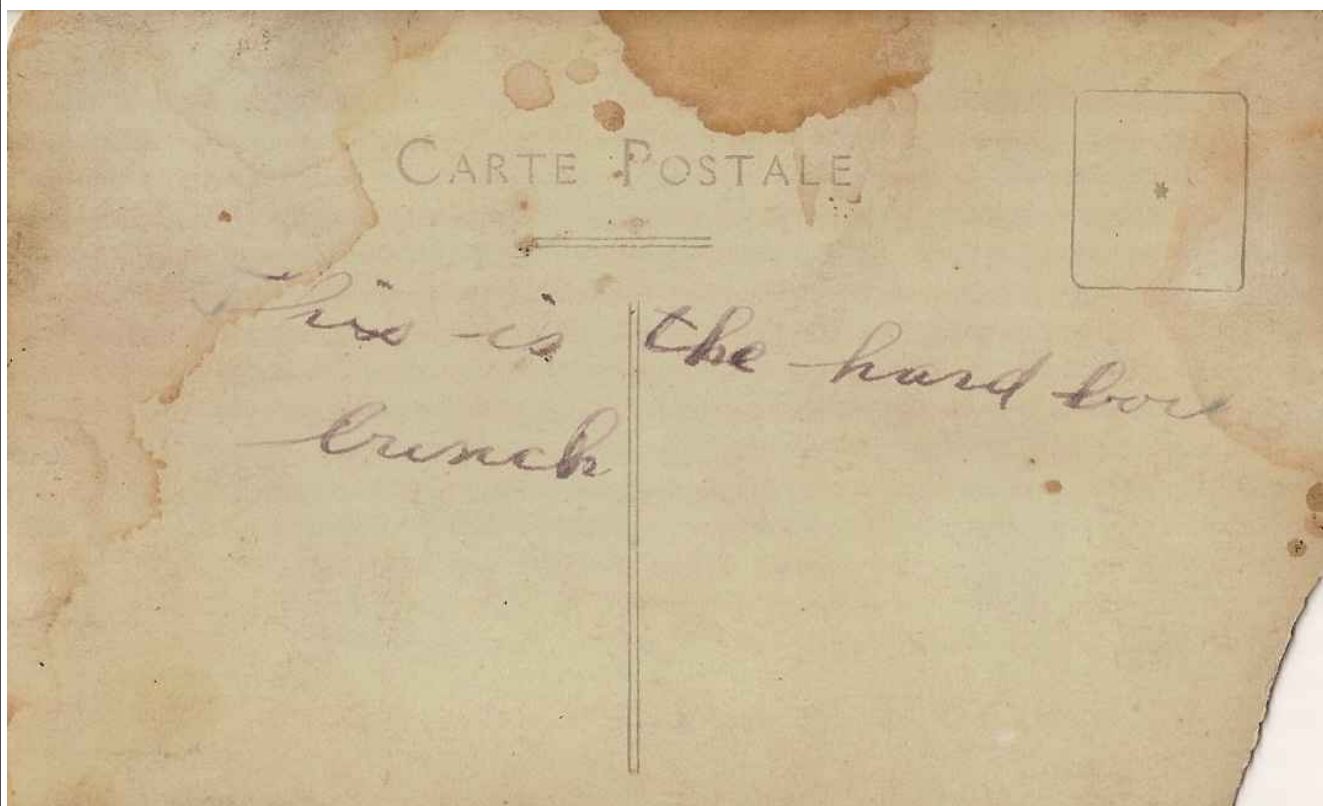 CARTE POSTALE
This is the hard
bunch